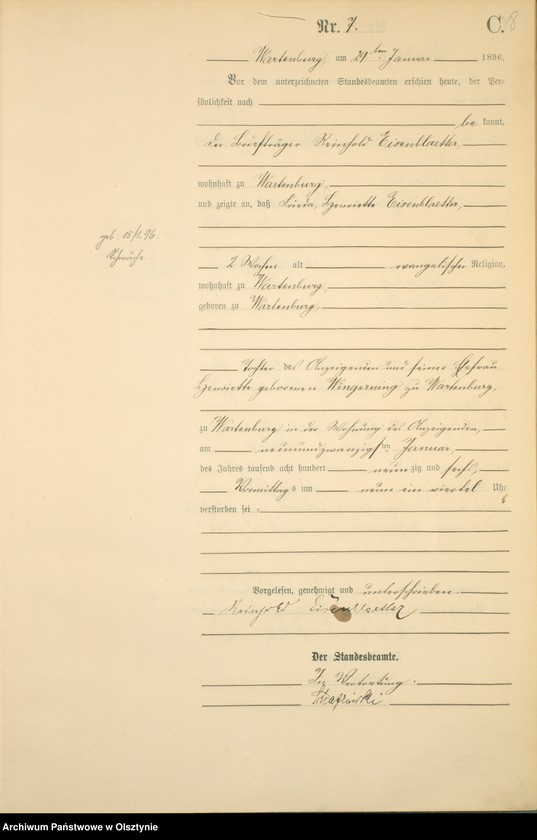 Nr. 7.
C.
8
Wartenburg am 29ten Januar 1896.
Vor dem unterzeichneten Standesbeamten erschien heute, der Per-
sönlichkeit nach
be kannt,
der Briefträger Reinhold Eisenblaetter,
wohnhaft zu Wartenburg,
und zeigte an, daß Henriette Eisenblaetter,
geb. 15/1. 96.
Schwäche
2 Wochen alt evangelischer Religion,
wohnhaft zu Wartenburg,
geboren zu Wartenburg,
Tochter des Anzeigenden und seiner Ehefrau
Henriette geborenen Wingerning zu Wartenburg,
zu Wartenburg in der Wohnung des Anzeigenden,
am neunundzwanzigsten Januar
des Jahres tausend acht hundert neun zig und sechs,
Vormittags um neun ein viertel Uhr
verstorben sei.
Vorgelesen, genehmigt und unterschrieben.
Reinhold Eisenblaetter
Der Standesbeamte.
In Vertretung.
Archiwum Państwowe w Olsztynie